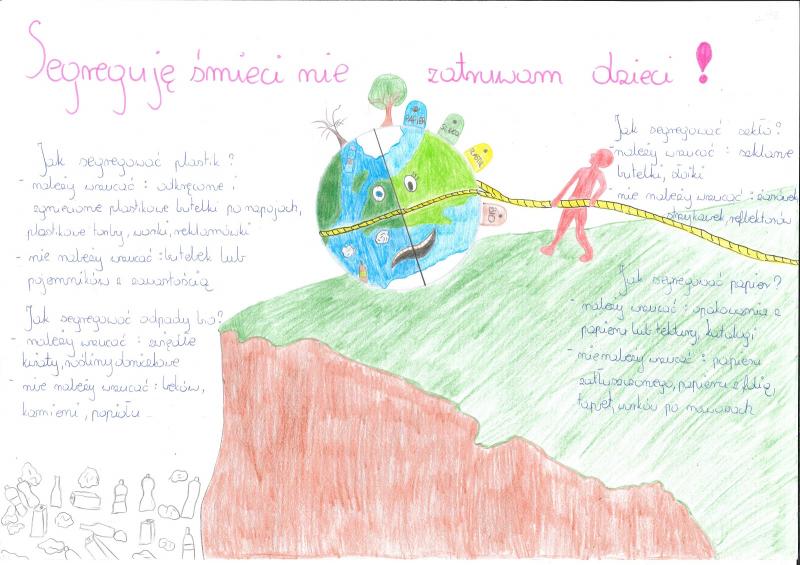 Segreguję śmieci nie zatruwam dzieci!
Jak segregować plastik?
- należy wrzucać: odkręcone i
zgniecione plastikowe butelki po napojach,
plastikowe torby, worki, reklamówki
- nie należy wrzucać: butelek lub
pojemników z zawartością
Jak segregować odpady bio?
- należy wrzucać: zwiędłe
kwiaty, rośliny doniczkowe
- nie należy wrzucać: leków,
kamieni, popiołu
PAPIER
SZKŁO
PLASTIK
BIO
Jak segregować szkło?
- należy wrzucać: szklane
butelki, słoiki
- nie należy wrzucać: żarówek,
reflektorów
Jak segregować papier?
- należy wrzucać: opakowania z
papieru lub tektury, katalogi
- nie należy wrzucać: papieru
zatłuszczonego, papieru z folią,
tapet, worków po nawozach